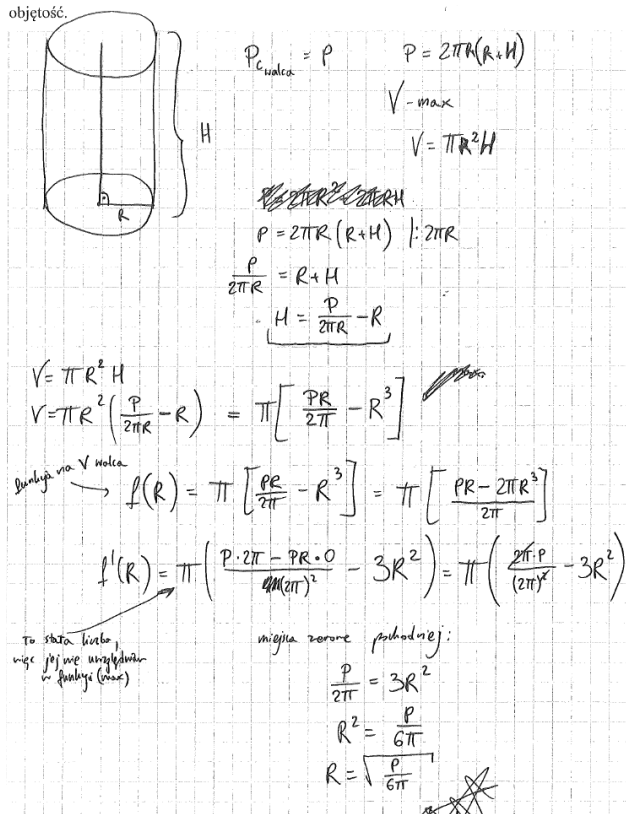 objętość.
P_c walca = P    P = 2πR(R+H)
V - max
V = πR²H
H
R
P = 2πR(R+H) |:2πR
P/2πR = R+H
H = P/2πR - R
V = πR²H
V = πR²(P/2πR - R) = π[PR/2π - R³]
funkcja na V walca
f(R) = π[PR/2π - R³] = π[(PR - 2πR³)/2π]
f'(R) = π((P·2π - PR·0)/(2π)² - 3R²) = π(2π·P/(2π)² - 3R²)
To stała liczba,
więc jej nie uwzględniam
w funkcji (max)
miejsca zerowe pochodnej:
P/2π = 3R²
R² = P/6π
R = √(P/6π)